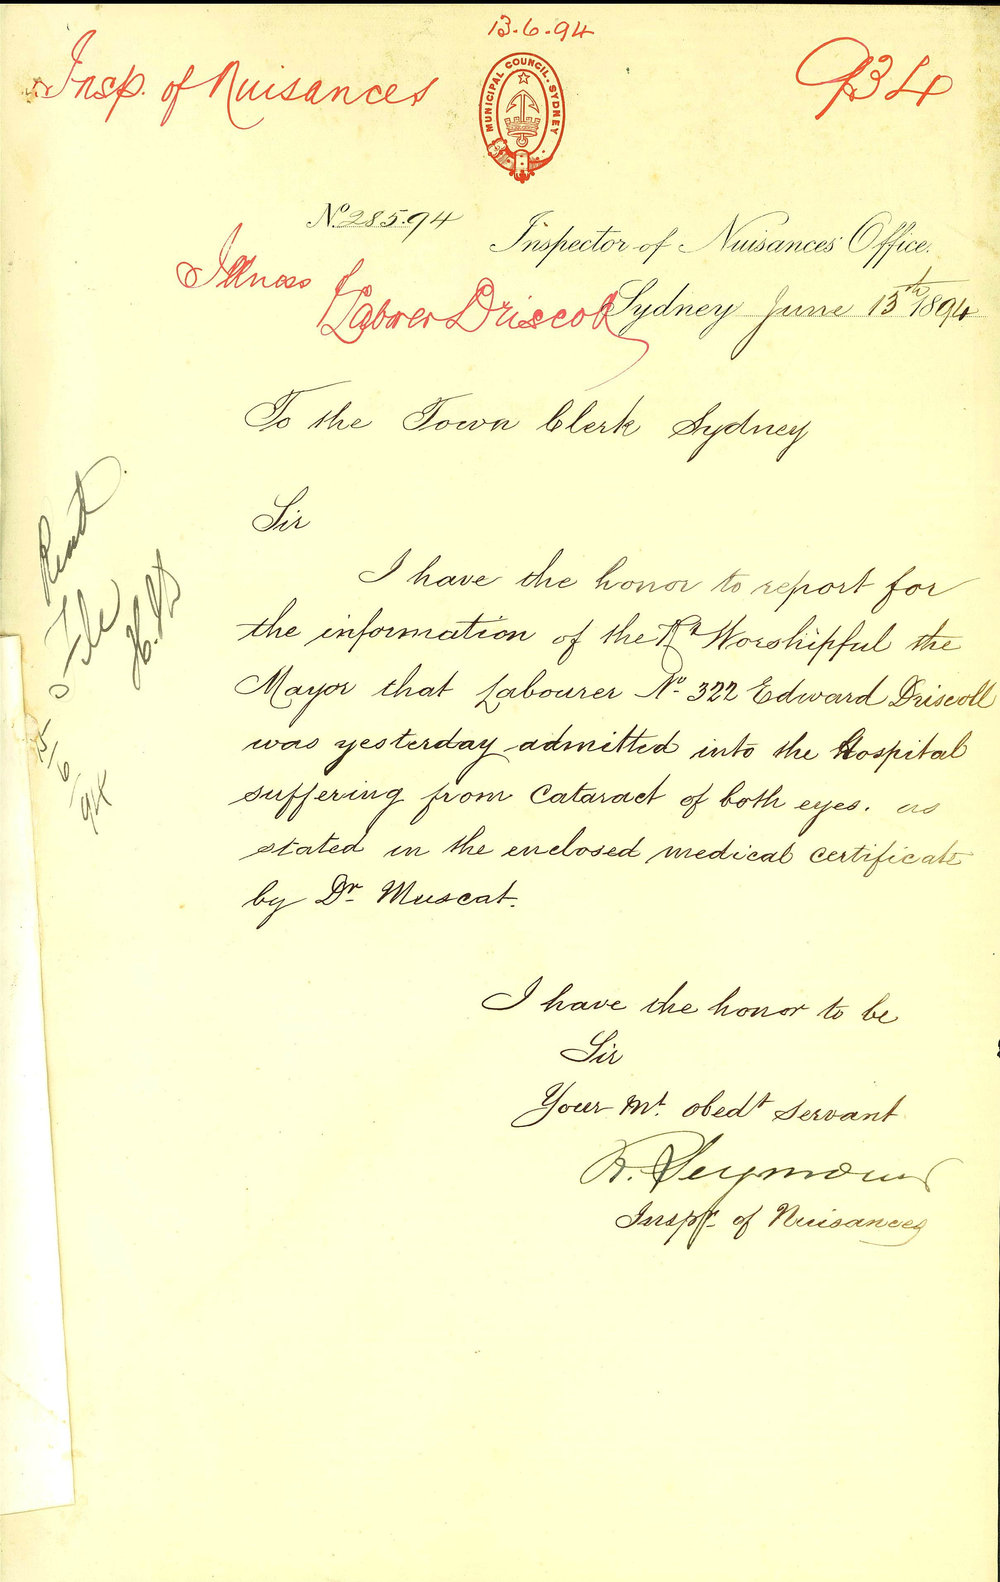 13.6.94
Insp. of Nuisances
934
MUNICIPAL COUNCIL. SYDNEY
No 285.94
Inspector of Nuisances' Office.
Illness of
Labrer Driscoll
Sydney June 13th 1894
To the Town Clerk Sydney
Sir
I have the honor to report for
the information of the Rt Worshipful the
Mayor that Labourer No. 322 Edward Driscoll
was yesterday admitted into the Hospital
suffering from Cataract of both eyes. as
stated in the enclosed medical certificate
by Dr. Muscat.
I have the honor to be
Sir
Your Mt. obedt servant
R. Seymour
Inspr. of Nuisances
Read
File
15/6/94